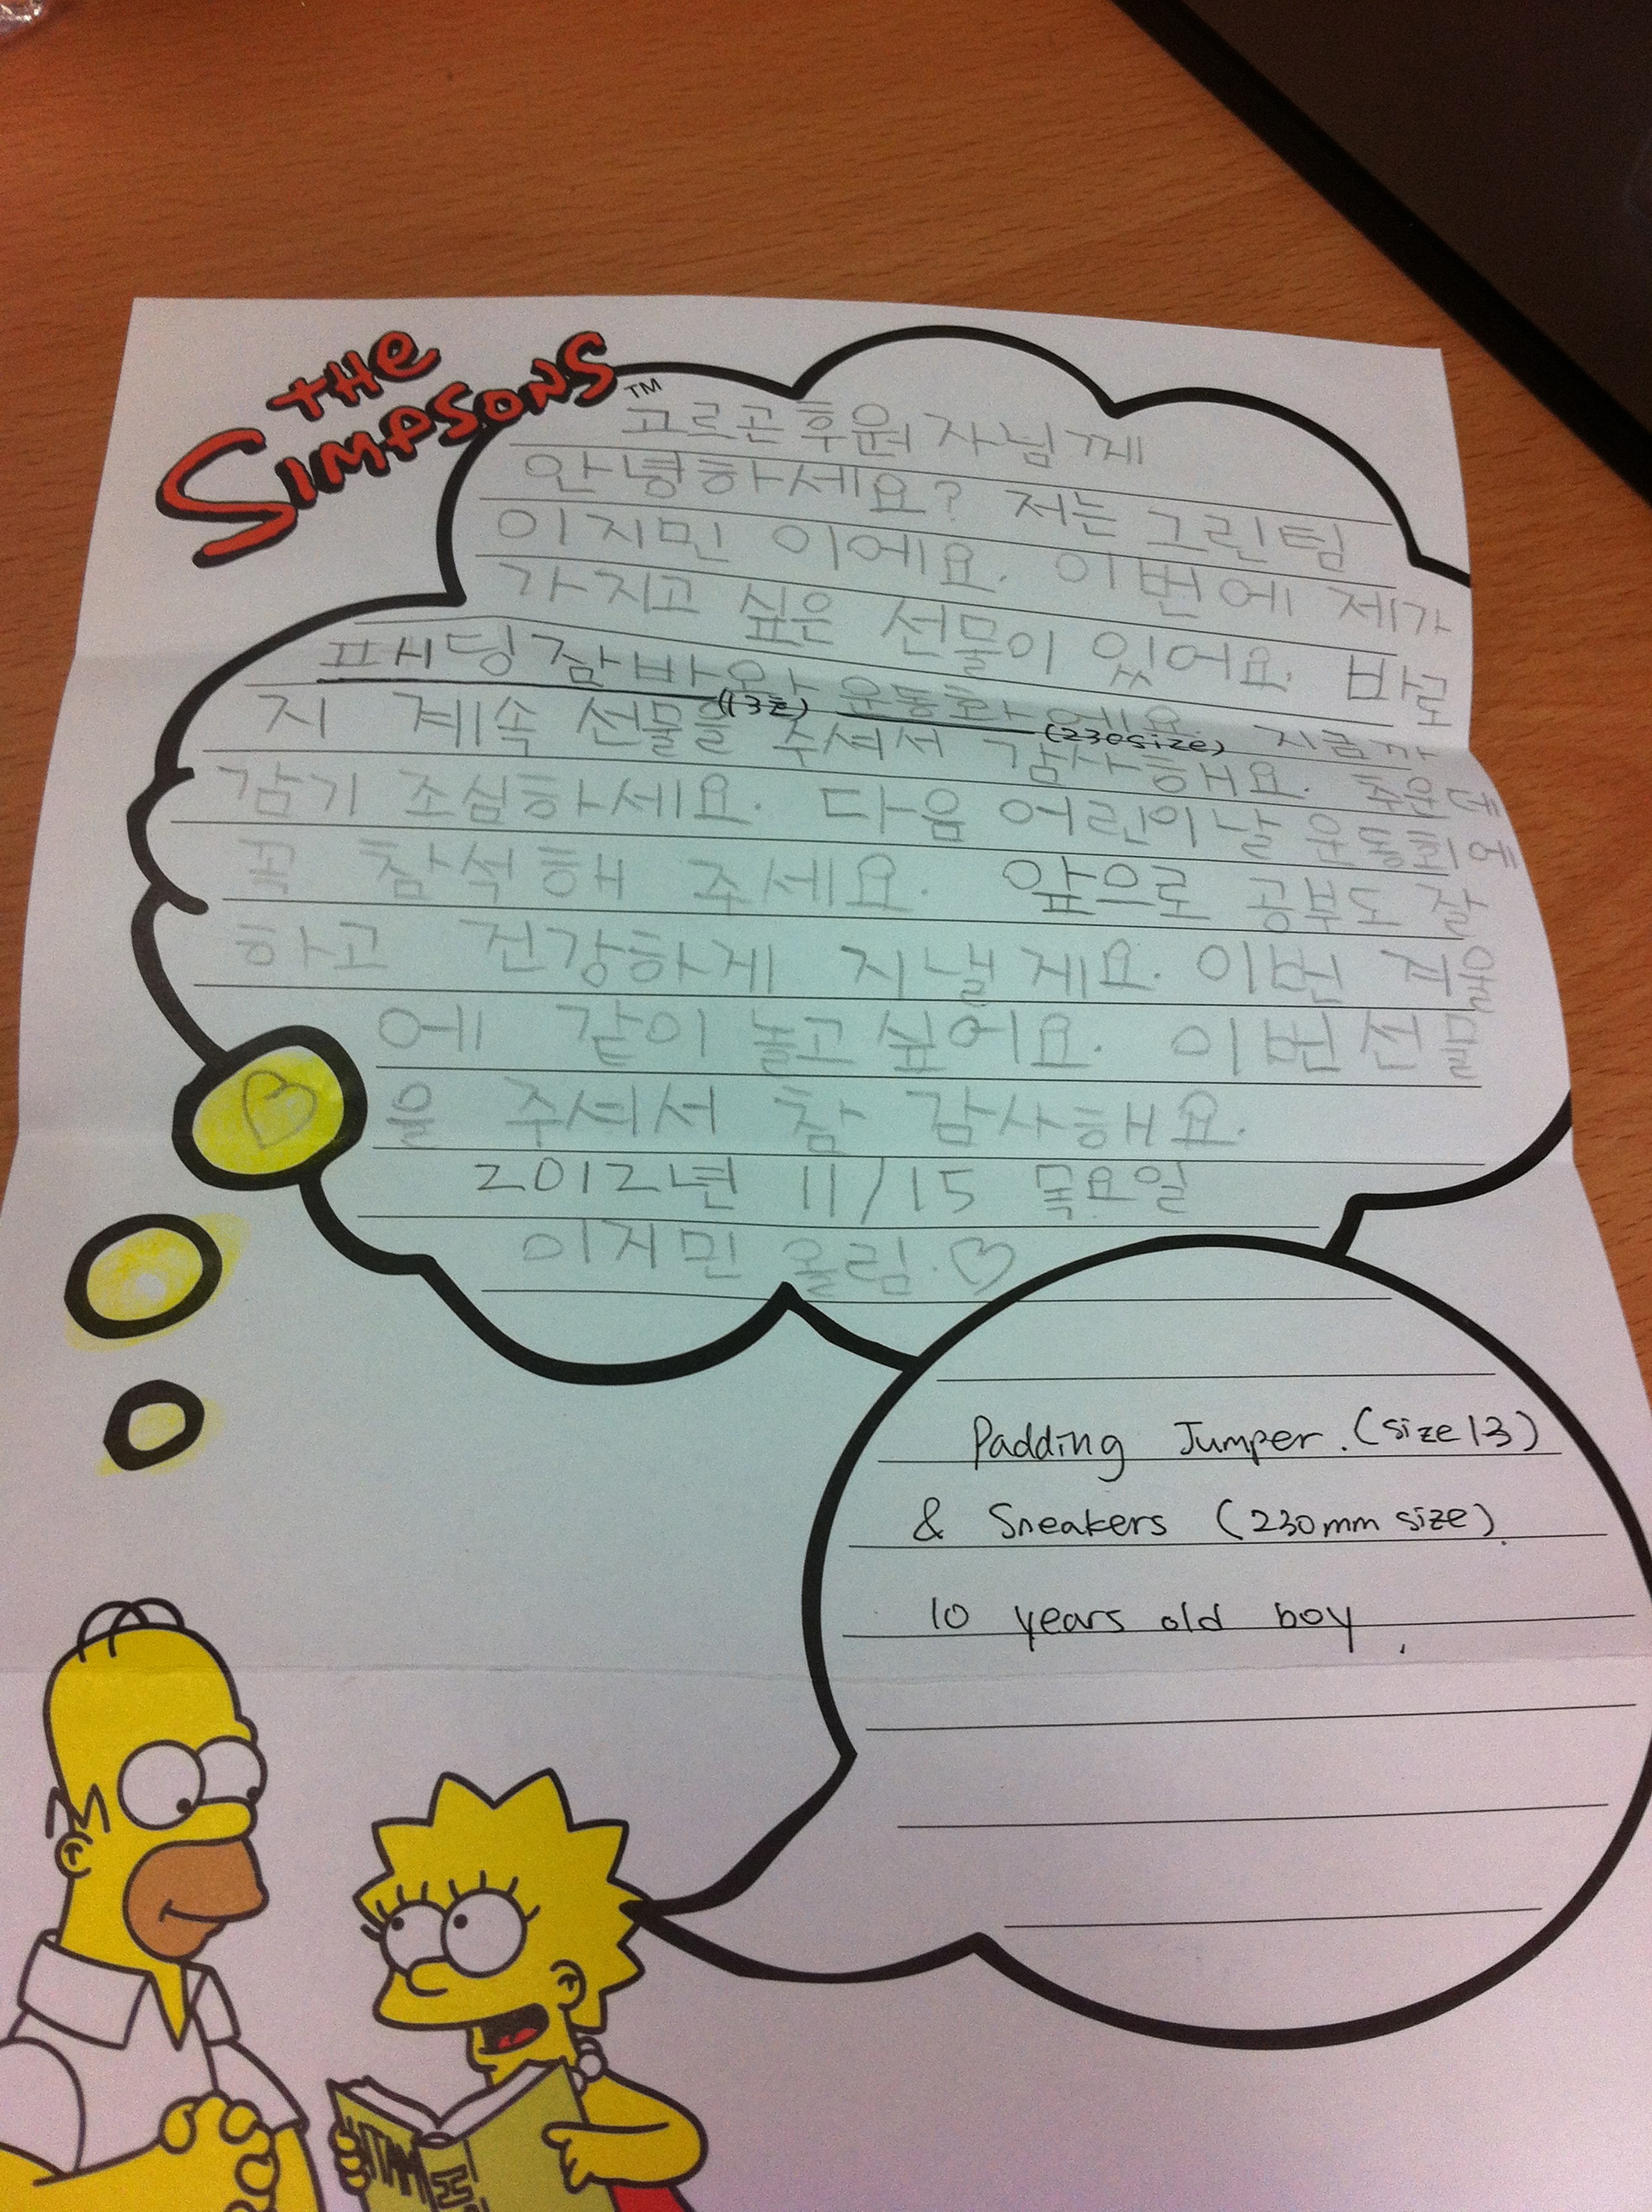 THE
SIMPSONS™
고르곤후원자님께
안녕하세요? 저는 그린팀
이지민 이에요. 이번에 제가
가지고 싶은 선물이 있어요. 바로
패딩잠바와 운동화에요. 지금까
(13호) (230size)
지 계속 선물을 주셔서 감사해요. 추운데
감기 조심하세요. 다음 어린이날 운동회에
꼭 참석해 주세요. 앞으로 공부도 잘
하고 건강하게 지낼게요. 이번 겨울
에 같이 놀고싶어요. 이번선물
을 주셔서 참 감사해요.
2012년 11/15 목요일
이지민 올림.♡
Padding Jumper. (size 13)
& Sneakers (230mm size).
10 years old boy.